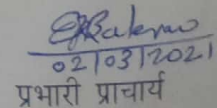 02/03/2021
प्रभारी प्राचार्य